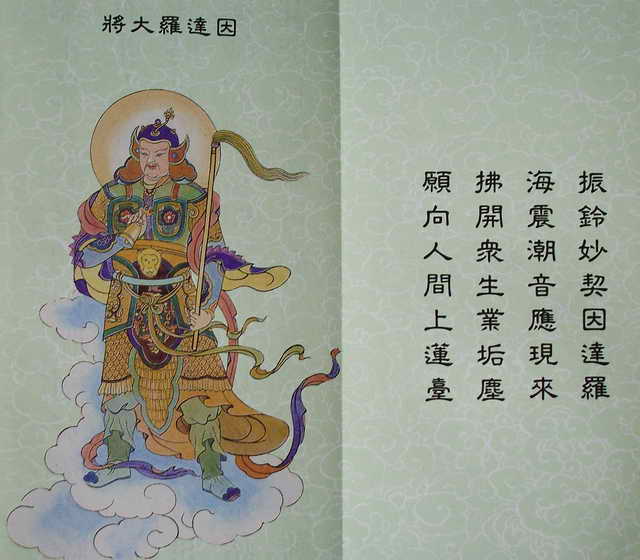 因達羅大將
振鈴妙契因達羅
海震潮音應現來
拂開衆生業垢塵
願向人間上蓮臺